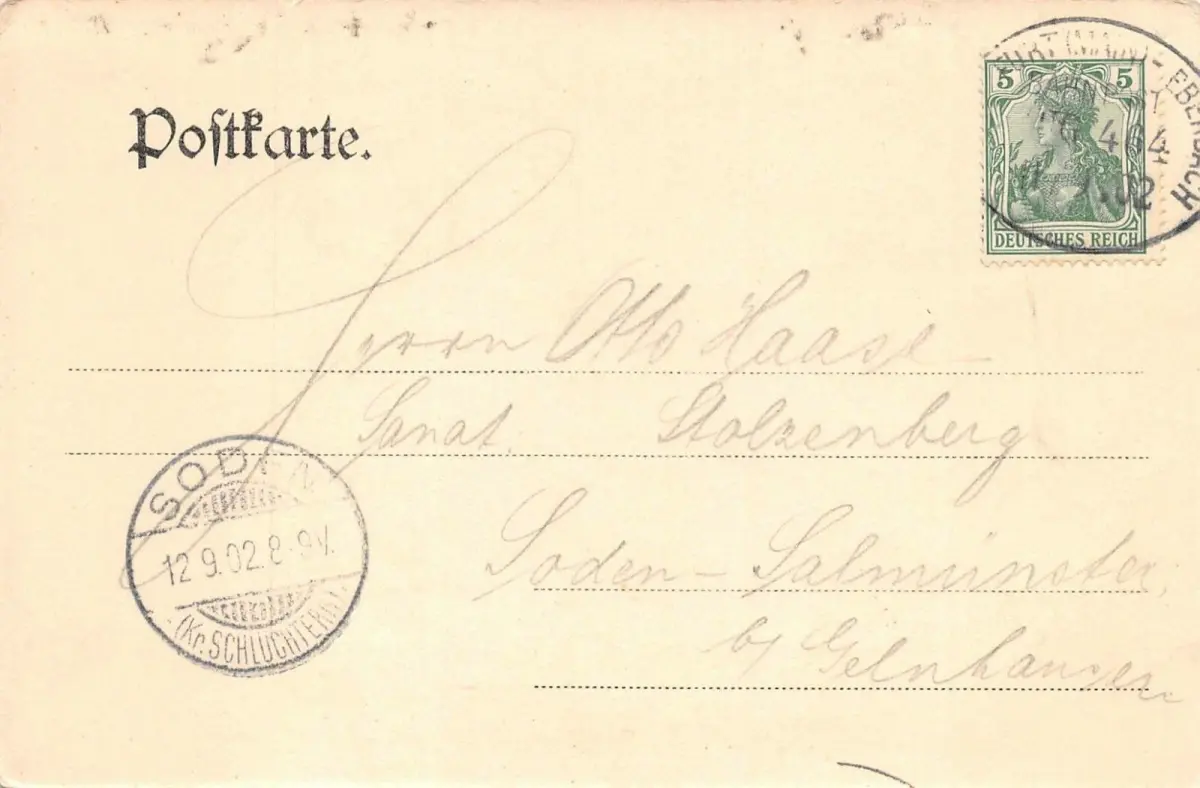 Postkarte.
5 5
DEUTSCHES REICH
FURT (MAIN) - EBERBACH
BAHNPOST
464
.02
Herrn Otto Haase
Sanat. Stolzenberg
Soden - Salmünster
b/ Gelnhausen
SODEN
12.9.02.8-9V.
(Kr. SCHLÜCHTERN)